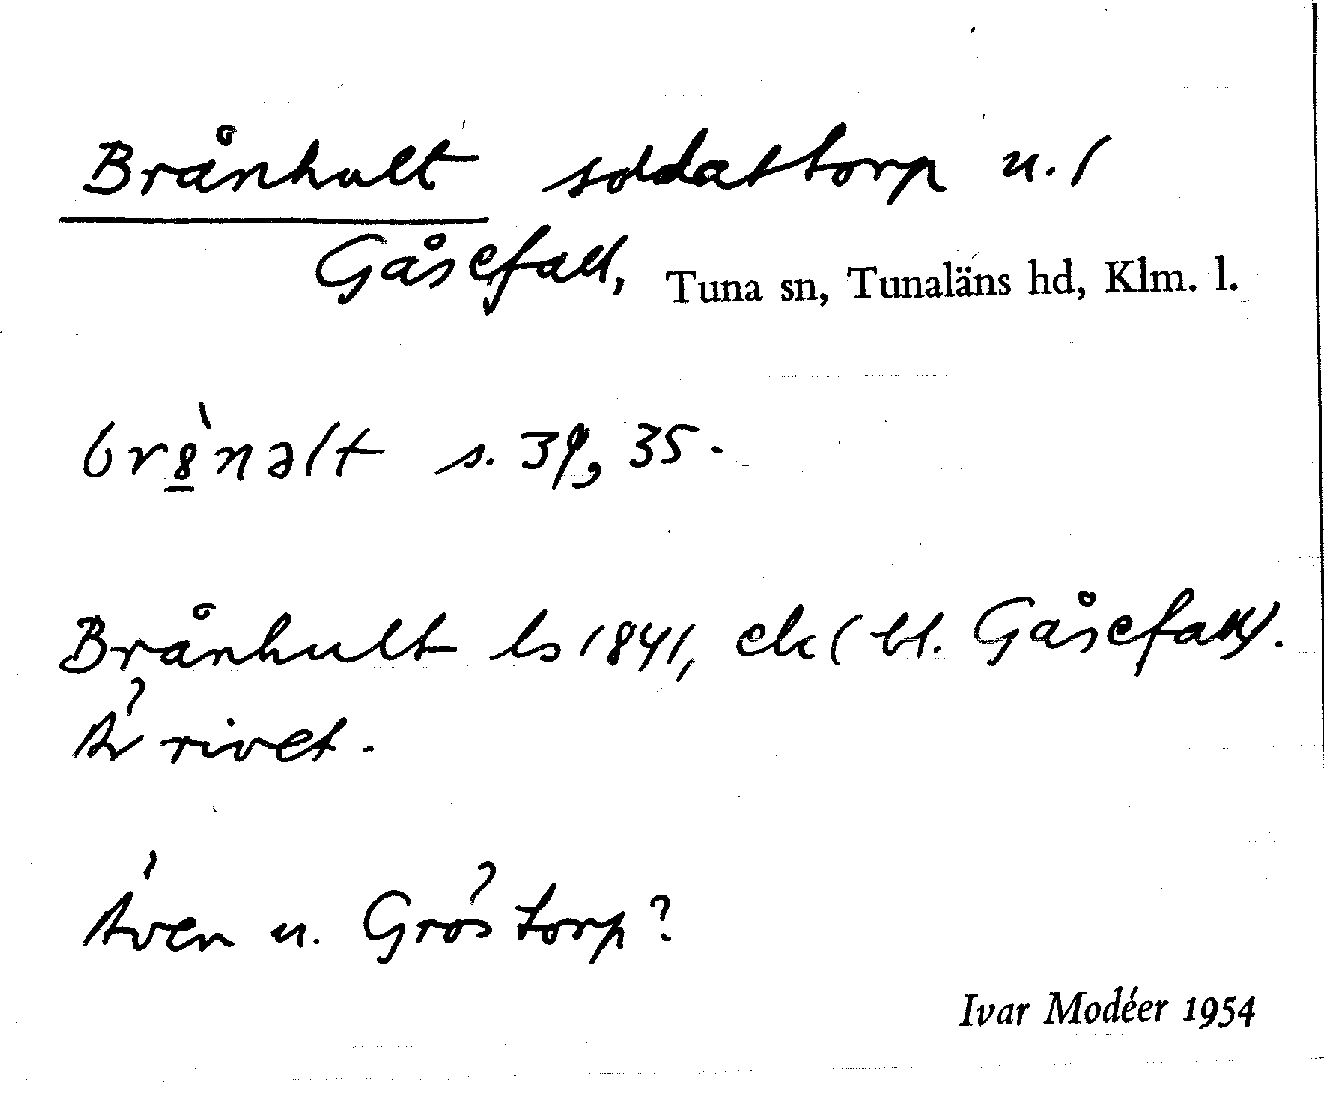 Brånhult soldattorp u. /
Gåsefall, Tuna sn, Tunaläns hd, Klm. l.
br8̲̀nəlt s. 39, 35.
Brånhult ls 1841, ek (bl. Gåsefall).
Är rivet.
Även u. Gröstorp?
Ivar Modéer 1954